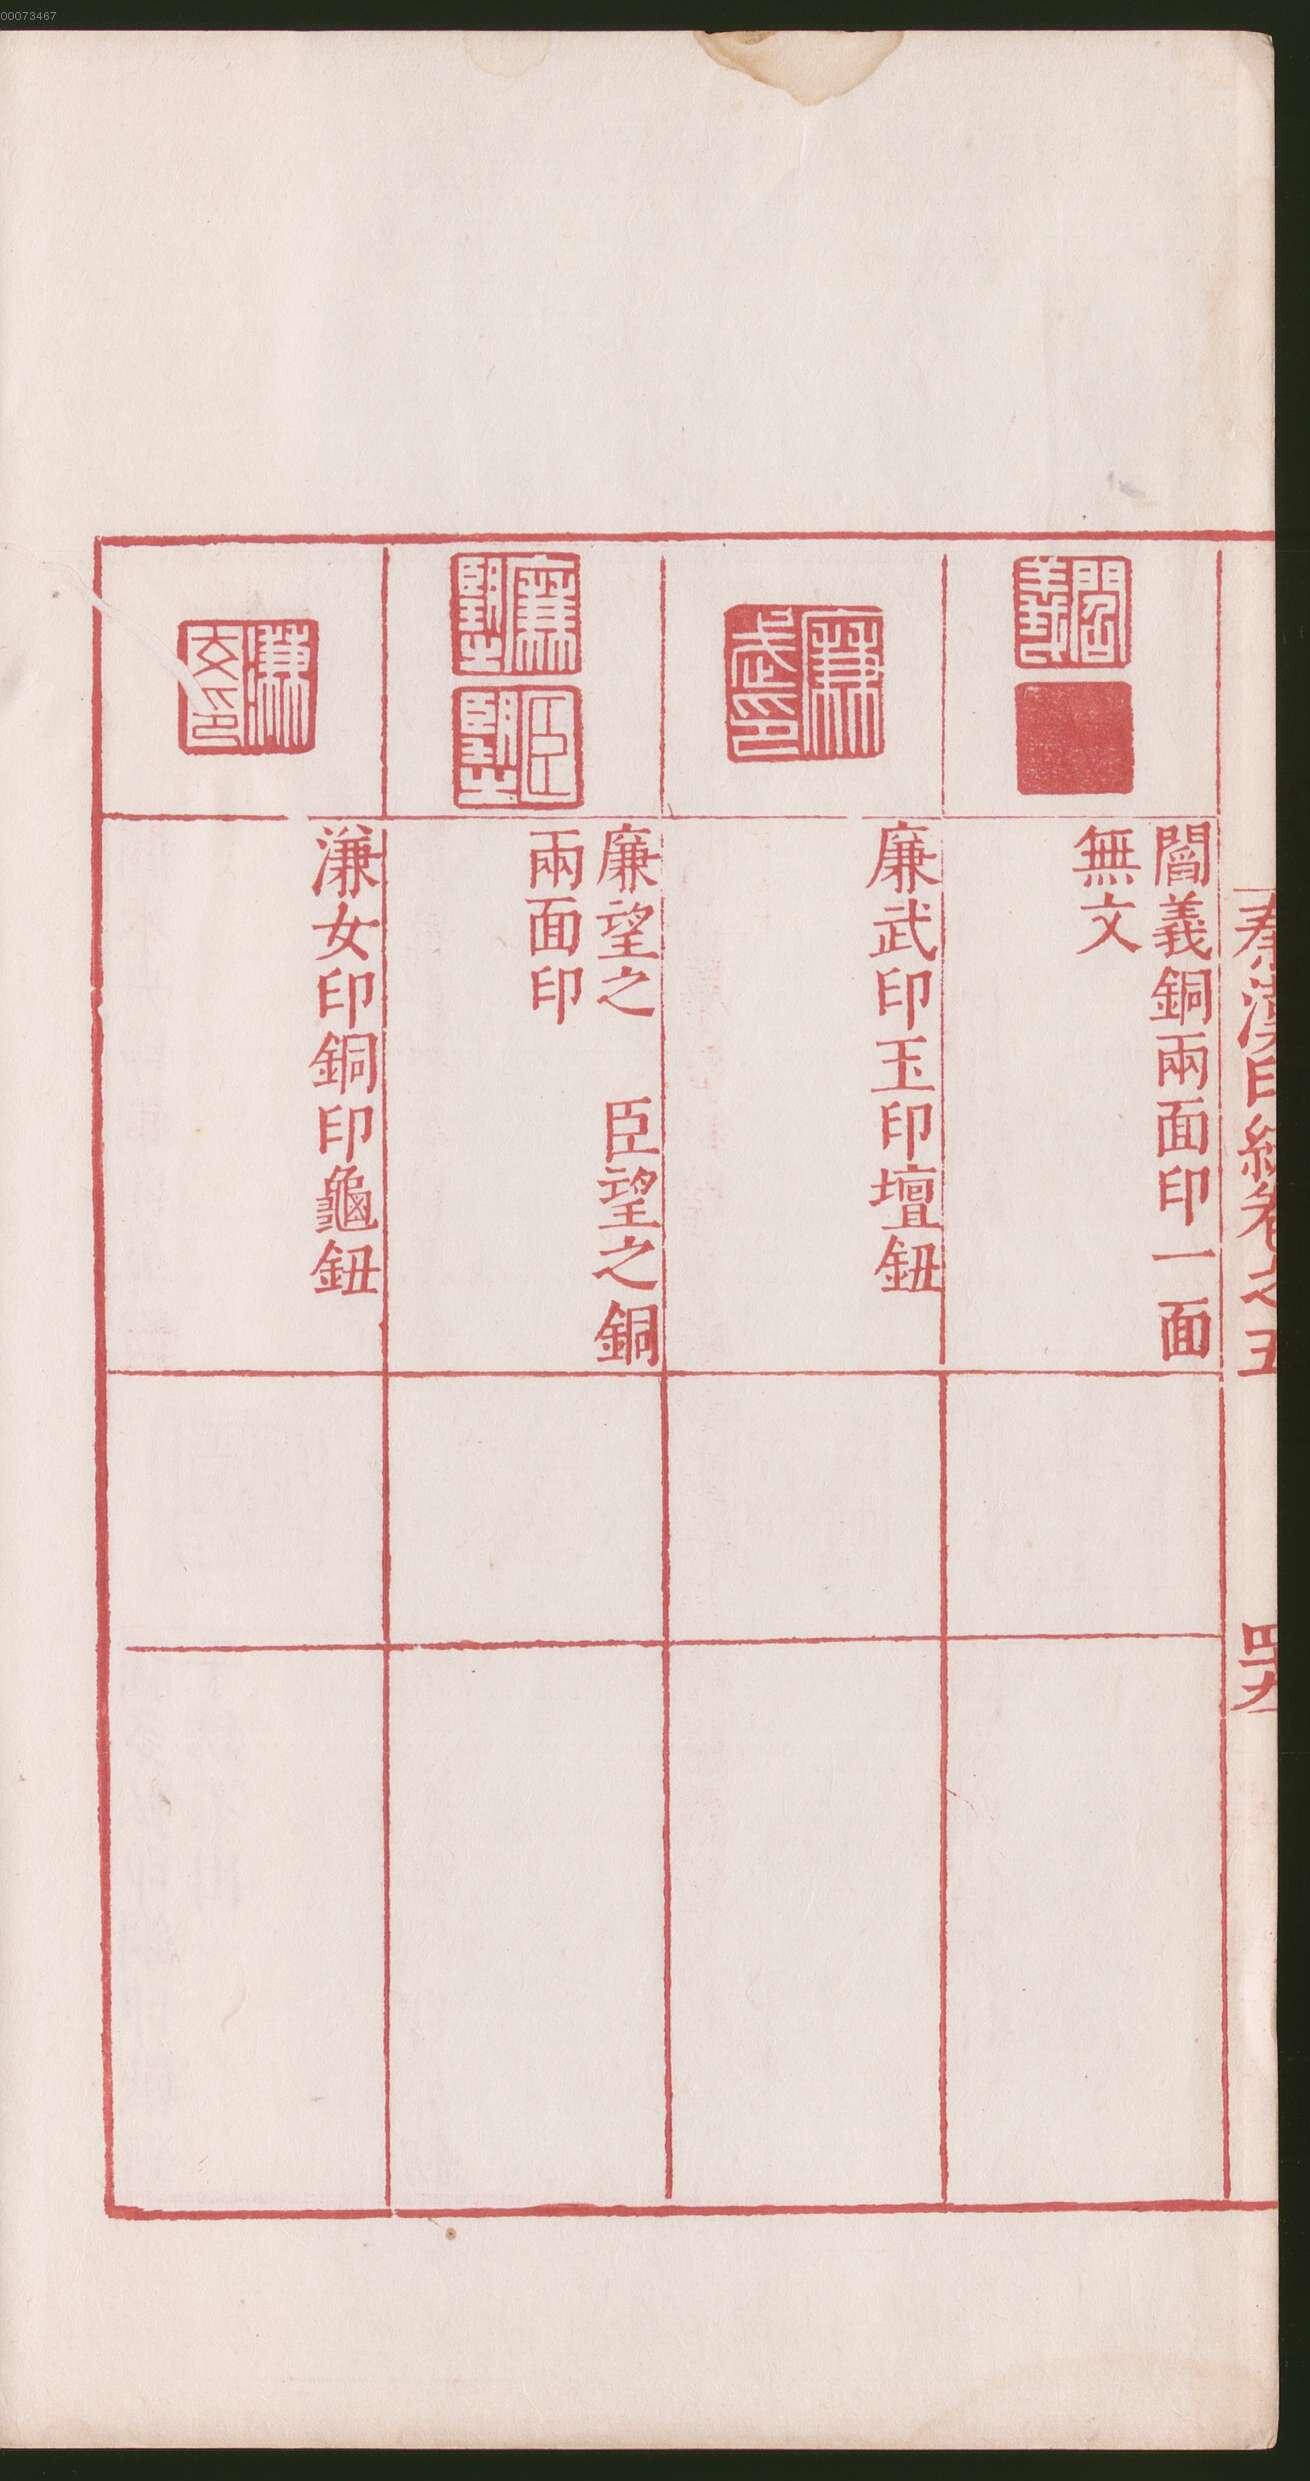 00073467
秦漢印統卷之五
四九
閻義銅兩面印一面
無文
廉武印玉印壇鈕
廉望之　臣望之銅
兩面印
溓女印銅印龜鈕